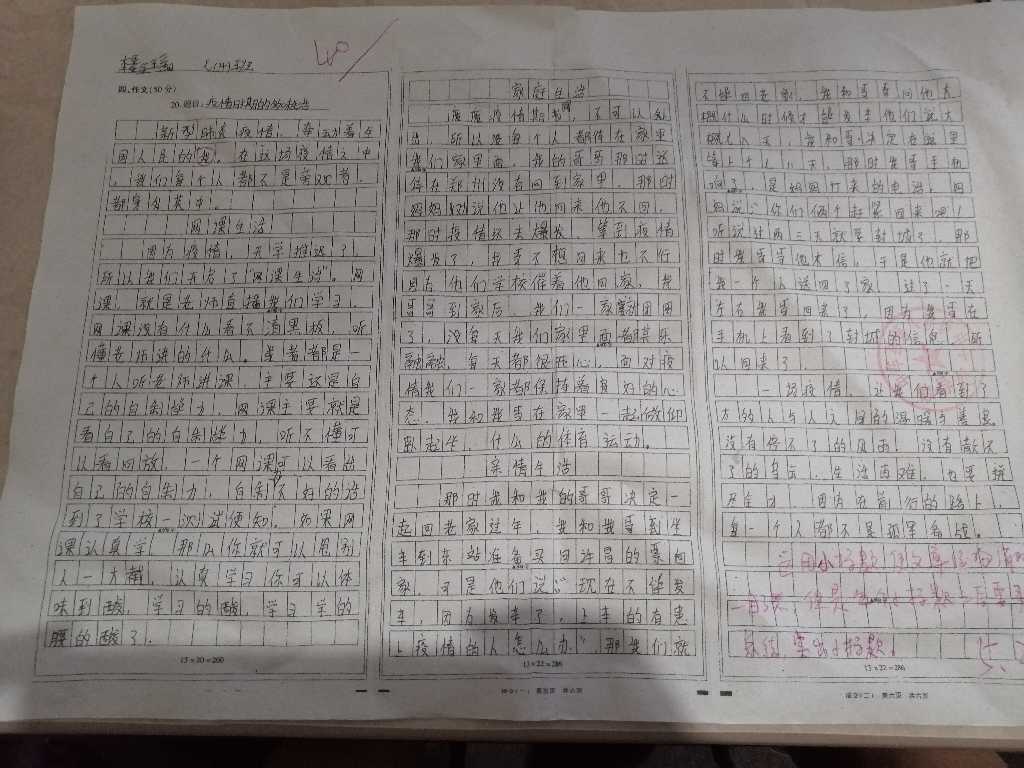 八(4)班
40
四、作文(50分)
20.题目:疫情时期的
新型肺炎疫情,牵动着全
国人民的心。在这场疫情之中
,我们每个人都不是旁观者,
都身处其中。
网课生活
因为疫情,开学推迟了,
所以我们开启了“网课生活”。网
课,就是老师直播我们学习,
网课没有什么看不清黑板,听
懂老师讲的什么。坐着都是一
个人听老师讲课,主要这是自
己的自制能力,网课主要就是
看自己的自制能力,听不懂可
以看回放,一个网课可以看出
自己的自制力,自制不好的话
到了学校一次试便知,如果网
课认真学,那么你就可以甩别
人一大截,认真学习你可以体
味到酸,学习的酸,学习学的
腰的酸了。
13×20=260
家庭生活
度度疫情期间,不可以外
出,所以每个人都待在家里
我们家里面,我的哥哥那时还
待在郑州没有回到家里,那时
妈妈劝说他让他回来他不回,
那时疫情还未爆发,等到疫情
爆发了,我李不想回来也不行
因为他们学校催着他回家,我
哥哥到家后,我们一家团团圆
了,没每天我们家里面都其乐
融融,每天都很开心,面对疫
情我们一家都保持着良好的心
态,我和我哥在家里一起做仰
卧起坐,什么的体育运动。
亲情生活
那时我和我的哥哥决定一
起回老家过年,我和我哥到坐
车到东站在购买回许昌的票回
家,可是他们说:“现在不能发
车,因为发车了,上车的有患
上疫情的人怎么办”,那我们就
13×22=286
语文(一) 第五页 共六页
,我和哥哥问他
概什么时候才能发车他们说大
概七八天,我和哥决定在这里
等上个七八天,那时我哥手机
响了,是妈妈打来的电话,妈
妈说:“你们俩个赶紧回来吧!
听说过两三天就要封城了,那
时我哥哥他不信,于是他就把
我一个人送回了家,过了一天
左右我哥回来了,因为我哥在
手机上看到了封城的信息,所
以回来了。
一场疫情,让我们看到了
太多人与人之间的温暖与善良
没有停不了的风雨,没有散不
了的乌云,生活再难,也要
,因为在前行的路上,
每一个人都不是孤军奋战。
13×22=286
语文(二) 第六页 共六页